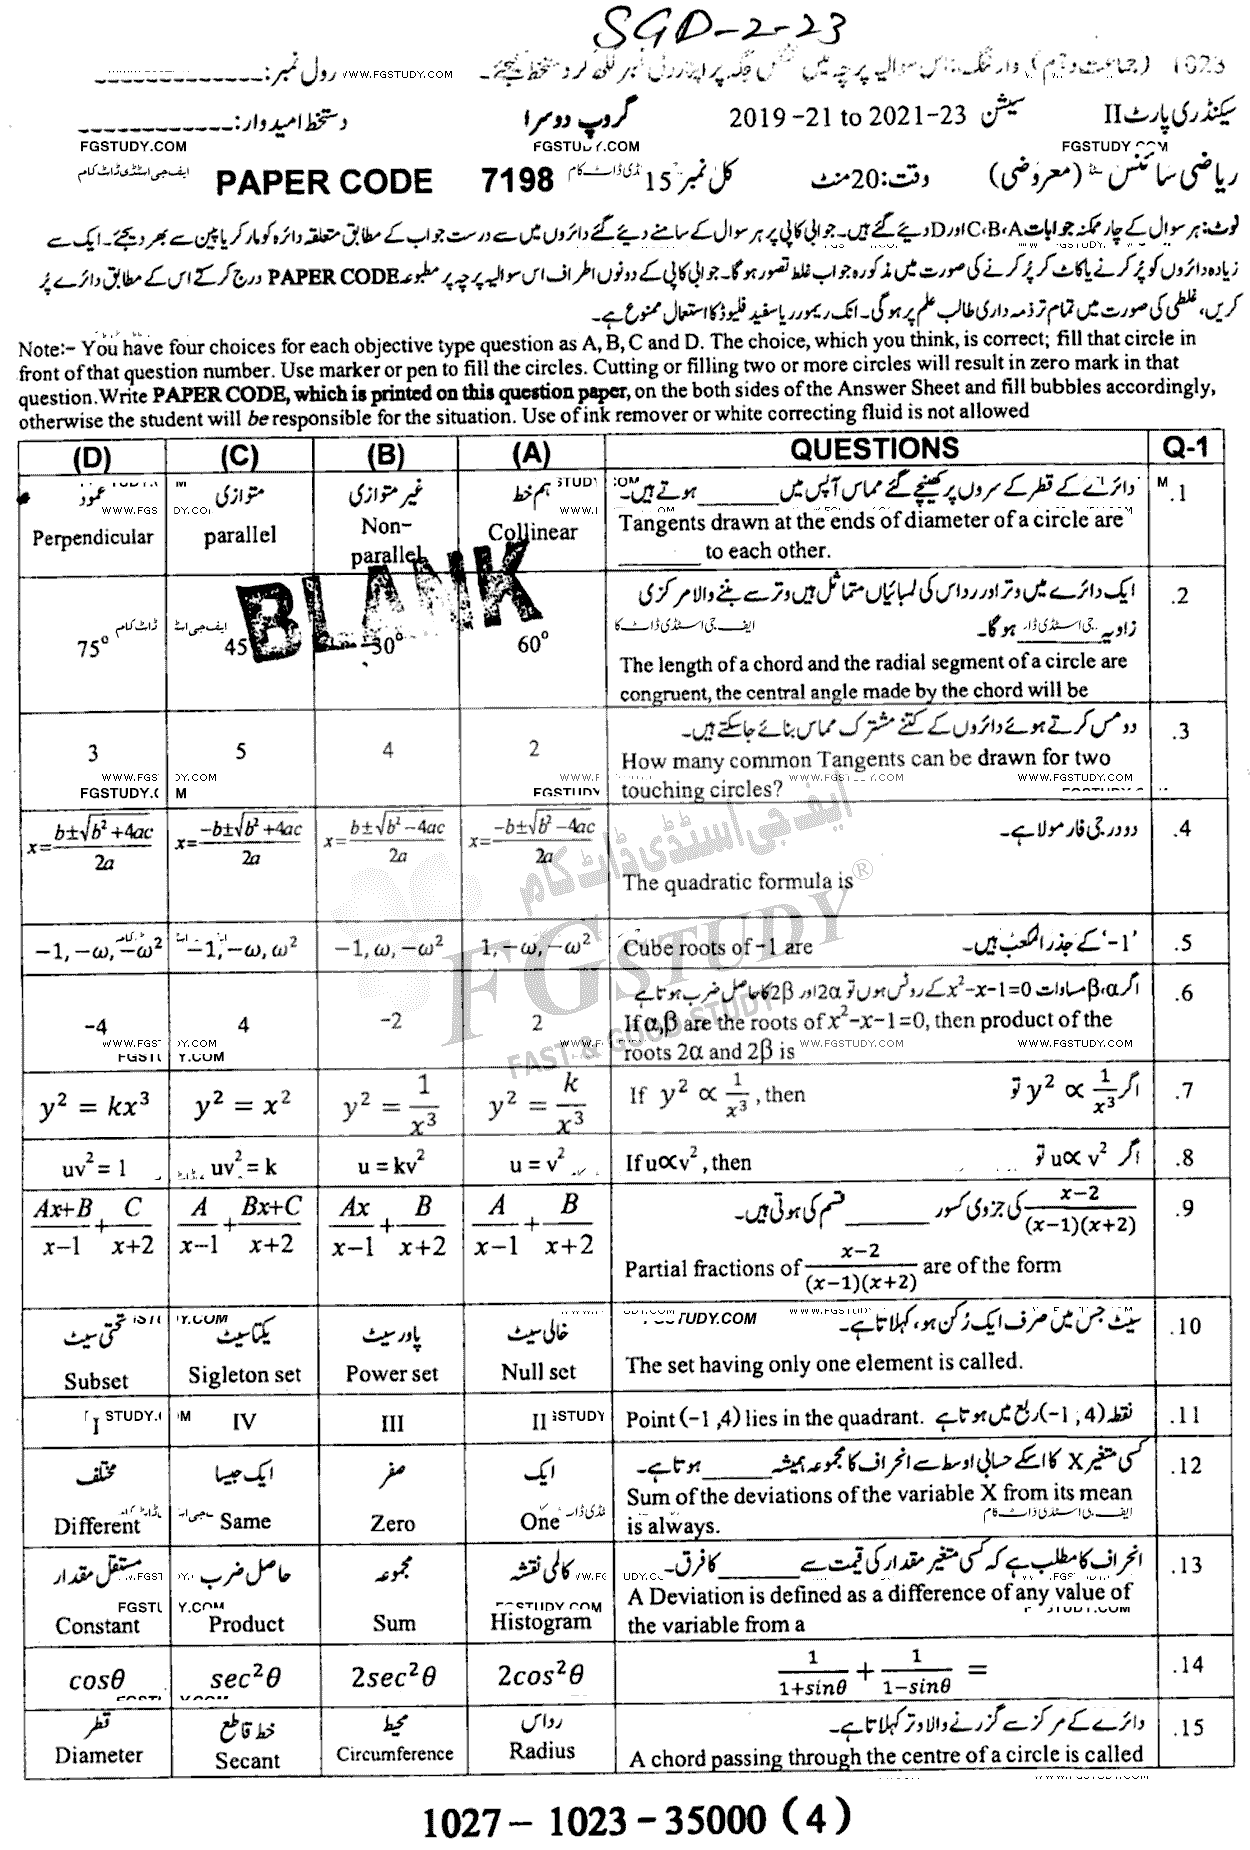 SGD-2-23
1023 (جماعت دہم) وارننگ: اس سوالیہ پرچہ میں مختص جگہ پر اپنا رول نمبر لکھ کر دستخط کیجئے۔ WWW.FGSTUDY.COM رول نمبر:
سیکنڈری پارٹ II سیشن 2019 -21 to 2021-23 گروپ دوسرا دستخط امیدوار:
FGSTUDY.COM
ریاضی سائنس (معروضی) وقت: 20 منٹ کل نمبر 15 PAPER CODE 7198
نوٹ: ہر سوال کے چار ممکنہ جوابات C،B،A اور D دیئے گئے ہیں۔ جوابی کاپی پر ہر سوال کے سامنے دیئے گئے دائروں میں سے درست جواب کے مطابق متعلقہ دائرہ کو مارکر یا پین سے بھر دیجئے۔ ایک سے
زیادہ دائروں کو پُر کرنے یا کاٹ کر پُر کرنے کی صورت میں مذکورہ جواب غلط تصور ہوگا۔ جوابی کاپی کے دونوں اطراف اس سوالیہ پرچہ پر مطبوعہ PAPER CODE درج کر کے اس کے مطابق دائرے پُر
کریں، غلطی کی صورت میں تمام تر ذمہ داری طالب علم پر ہوگی۔ انک ریموور یا سفید فلیوڈ کا استعمال ممنوع ہے۔
Note:- You have four choices for each objective type question as A, B, C and D. The choice, which you think, is correct; fill that circle in
front of that question number. Use marker or pen to fill the circles. Cutting or filling two or more circles will result in zero mark in that
question.Write PAPER CODE, which is printed on this question paper, on the both sides of the Answer Sheet and fill bubbles accordingly,
otherwise the student will be responsible for the situation. Use of ink remover or white correcting fluid is not allowed
(D) (C) (B) (A) QUESTIONS Q-1
عمود متوازی غیر متوازی ہم خط دائرے کے قطر کے سروں پر کھینچے گئے مماس آپس میں ______ ہوتے ہیں۔ .1
Perpendicular parallel Non-parallel Collinear Tangents drawn at the ends of diameter of a circle are
______ to each other.
BLANK
ایک دائرے میں وتر اور رداس کی لمبائیاں متماثل ہیں وتر سے بننے والا مرکزی .2
زاویہ ______ ہوگا۔
75° 45 30° 60° The length of a chord and the radial segment of a circle are
congruent, the central angle made by the chord will be
دو مس کرتے ہوئے دائروں کے کتنے مشترک مماس بنائے جا سکتے ہیں۔ .3
3 5 4 2 How many common Tangents can be drawn for two
touching circles?
x=b±√b²+4ac/2a x=-b±√b²+4ac/2a x=b±√b²-4ac/2a x=-b±√b²-4ac/2a دو درجی فارمولا ہے۔ .4
The quadratic formula is
-1,-ω,-ω² -1,-ω,ω² -1,ω,-ω² 1,-ω,-ω² Cube roots of -1 are '-1' کے جذر المکعب ہیں۔ .5
اگر β،α مساوات x²-x-1=0 کے روٹس ہوں تو 2α اور 2β کا حاصل ضرب ہوتا ہے .6
-4 4 -2 2 If α,β are the roots of x²-x-1=0, then product of the
roots 2α and 2β is
y² = kx³ y² = x² y² = 1/x³ y² = k/x³ If y² ∝ 1/x³ ,then اگر y² ∝ 1/x³ تو .7
uv²=1 uv²=k u=kv² u=v² If u∝v² ,then اگر u∝ v² تو .8
Ax+B/x-1 + C/x+2 A/x-1 + Bx+C/x+2 Ax/x-1 + B/x+2 A/x-1 + B/x+2 x-2/(x-1)(x+2) کی جزوی کسور ______ قسم کی ہوتی ہیں۔ .9
Partial fractions of x-2/(x-1)(x+2) are of the form
تحتی سیٹ یکتا سیٹ پاور سیٹ خالی سیٹ سیٹ جس میں صرف ایک رُکن ہو، کہلاتا ہے۔ .10
Subset Sigleton set Power set Null set The set having only one element is called.
I IV III II Point (-1 ,4) lies in the quadrant. نقطہ (-1 , 4) ربع میں ہوتا ہے .11
مختلف ایک جیسا صفر ایک کسی متغیر X کا اسکے حسابی اوسط سے انحراف کا مجموعہ ہمیشہ ______ ہوتا ہے۔ .12
Different Same Zero One Sum of the deviations of the variable X from its mean
is always.
مستقل مقدار حاصل ضرب مجموعہ کالمی نقشہ انحراف کا مطلب ہے کہ کسی متغیر مقدار کی قیمت سے ______ کا فرق۔ .13
Constant Product Sum Histogram A Deviation is defined as a difference of any value of
the variable from a
cosθ sec²θ 2sec²θ 2cos²θ 1/1+sinθ + 1/1-sinθ = .14
قطر خط قاطع محیط رداس دائرے کے مرکز سے گزرنے والا وتر کہلاتا ہے۔ .15
Diameter Secant Circumference Radius A chord passing through the centre of a circle is called
ایف جی اسٹڈی ڈاٹ کام
FGSTUDY®
FAST & GOOD STUDY
1027 – 1023 – 35000 (4)